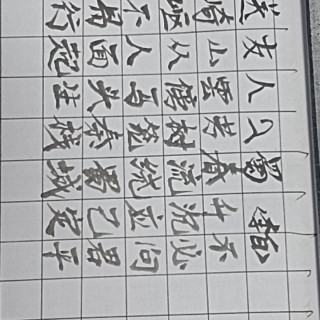 送友人入蜀 李白
崎岖不易行
山从人面起
雲傍马头生
芳树笼秦栈
春流绕蜀城
升沉应已定
不必问君平